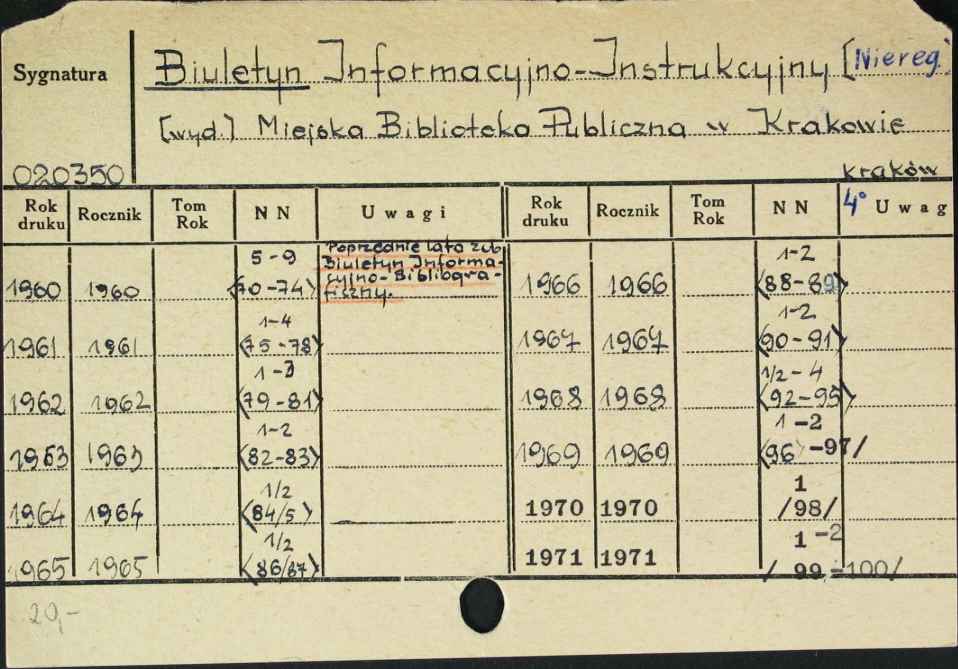 Sygnatura
Biuletyn Informacyjno-Instrukcyjny [Niereg.]
[wyd.] Miejska Biblioteka Publiczna w Krakowie
020350
Kraków
4°
Rok druku Rocznik Tom Rok NN Uwagi Rok druku Rocznik Tom Rok NN Uwag
Poprzednie lata zob.
Biuletyn Informa-
cyjno-Bibliogra-
ficzny.
5-9
1960 1960 <70-74>
1-4
1961 1961 <75-78>
1-3
1962 1962 <79-81>
1-2
1963 1963 <82-83>
1/2
1964 1964 <84/5>
1/2
1965 1965 <86/87>
1-2
1966 1966 <88-89>
1-2
1967 1967 <90-91>
1/2-4
1968 1968 <92-95>
1-2
1969 1969 <96>-97/
1
1970 1970 /98/
1-2
1971 1971 / 99,-100/
20,-